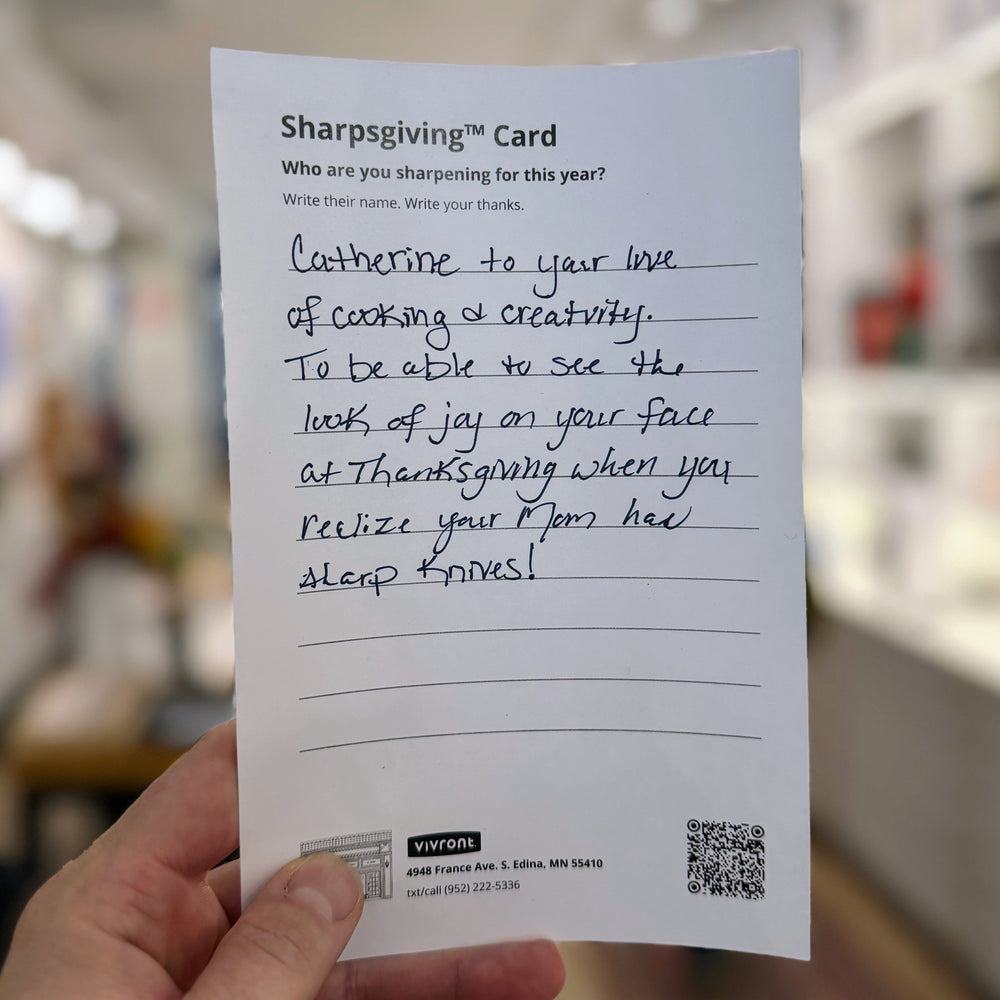 Sharpsgiving™ Card
Who are you sharpening for this year?
Write their name. Write your thanks.
Catherine to your love
of cooking & creativity.
To be able to see the
look of joy on your face
at Thanksgiving when you
realize your Mom has
sharp knives!
vivront
4948 France Ave. S. Edina, MN 55410
txt/call (952) 222-5336